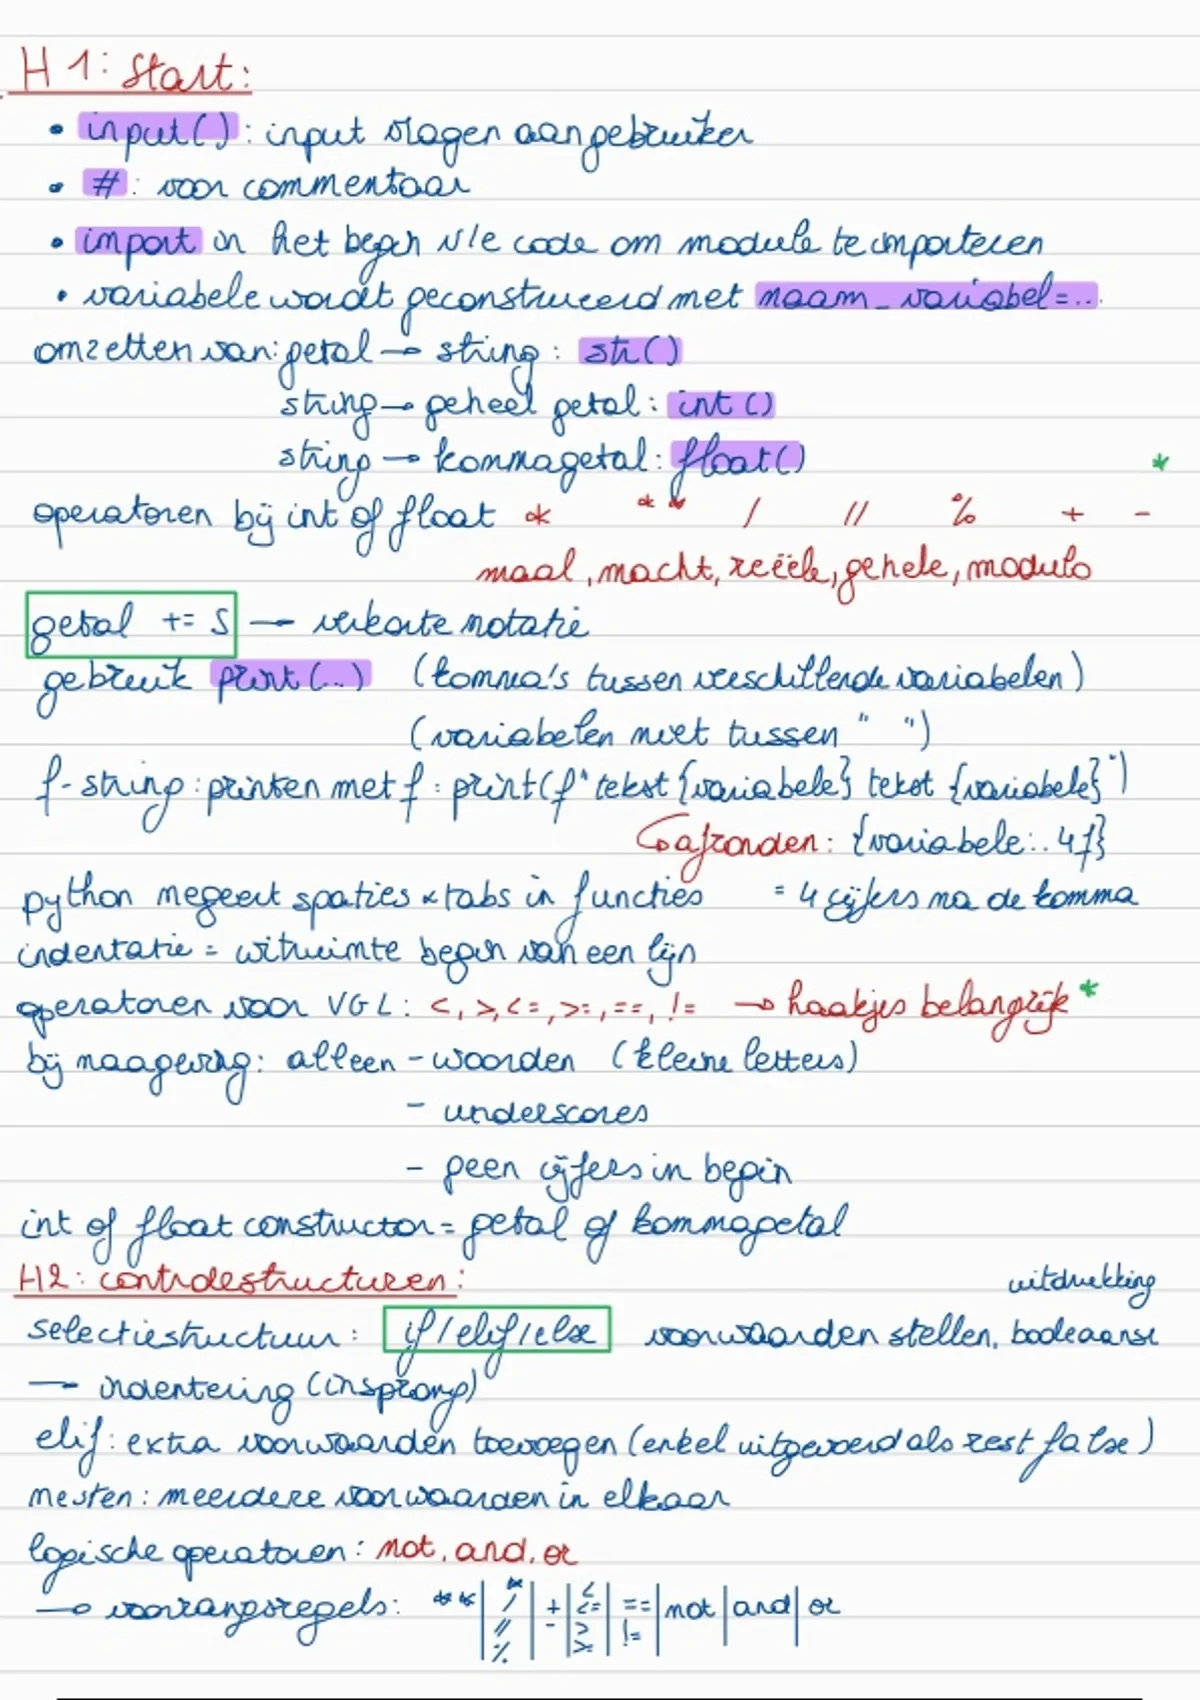 H1: Start:
• input(): input vragen aan gebruiker
• #: voor commentaar
• import in het begin v/e code om module te importeren
• variabele wordt geconstrueerd met naam_variabel=...
omzetten van: getal → string: str()
string → geheel getal: int()
string → kommagetal: float()
*
operatoren bij int of float * ** / // % + -
maal, macht, reëele, gehele, modulo
getal += 5 → verkorte notatie
gebruik print(...) (komma's tussen verschillende variabelen)
(variabelen niet tussen " ")
f-string: printen met f: print(f"tekst {variabele} tekst {variabele}")
↳ afronden: {variabele:.4f}
python negeert spaties & tabs in functies = 4 cijfers na de komma
indentatie = witruimte begin van een lijn
operatoren voor VGL: <, >, <=, >=, ==, != → haakjes belangrijk *
bij naamgeving: alleen - woorden (kleine letters)
- underscores
- geen cijfers in begin
int of float constructor = getal of kommagetal
H2: controlestructuren:
uitdrukking
selectiestructuur: if/elif/else voorwaarden stellen, booleaanse
→ indentering (insprong)
elif: extra voorwaarden toevoegen (enkel uitgevoerd als rest false)
nesten: meerdere voorwaarden in elkaar
logische operatoren: not, and, or
→ voorrangsregels: ** | * / // % | + - | < <= > >= | == != | not | and | or